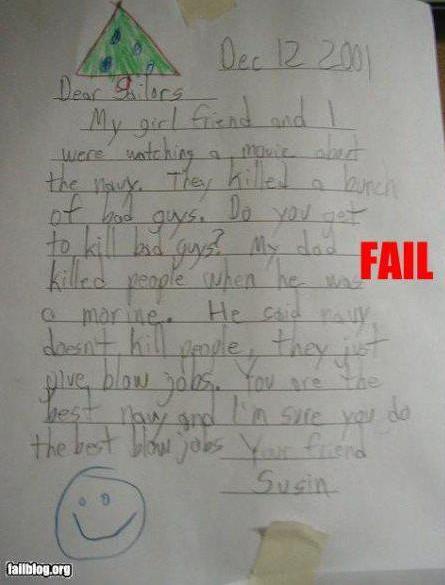 Dec 12 2001
Dear Sailors
My girl friend and I
were watching a movie about
the navy. They killed a bunch
of bad guys. Do you get
to kill bad guys? My dad
FAIL
killed people when he was
a marine. He said navy
doesn't kill people, they just
give blow jobs. You are the
best navy and I'm sure you do
the best blow jobs Your friend
Susin
failblog.org